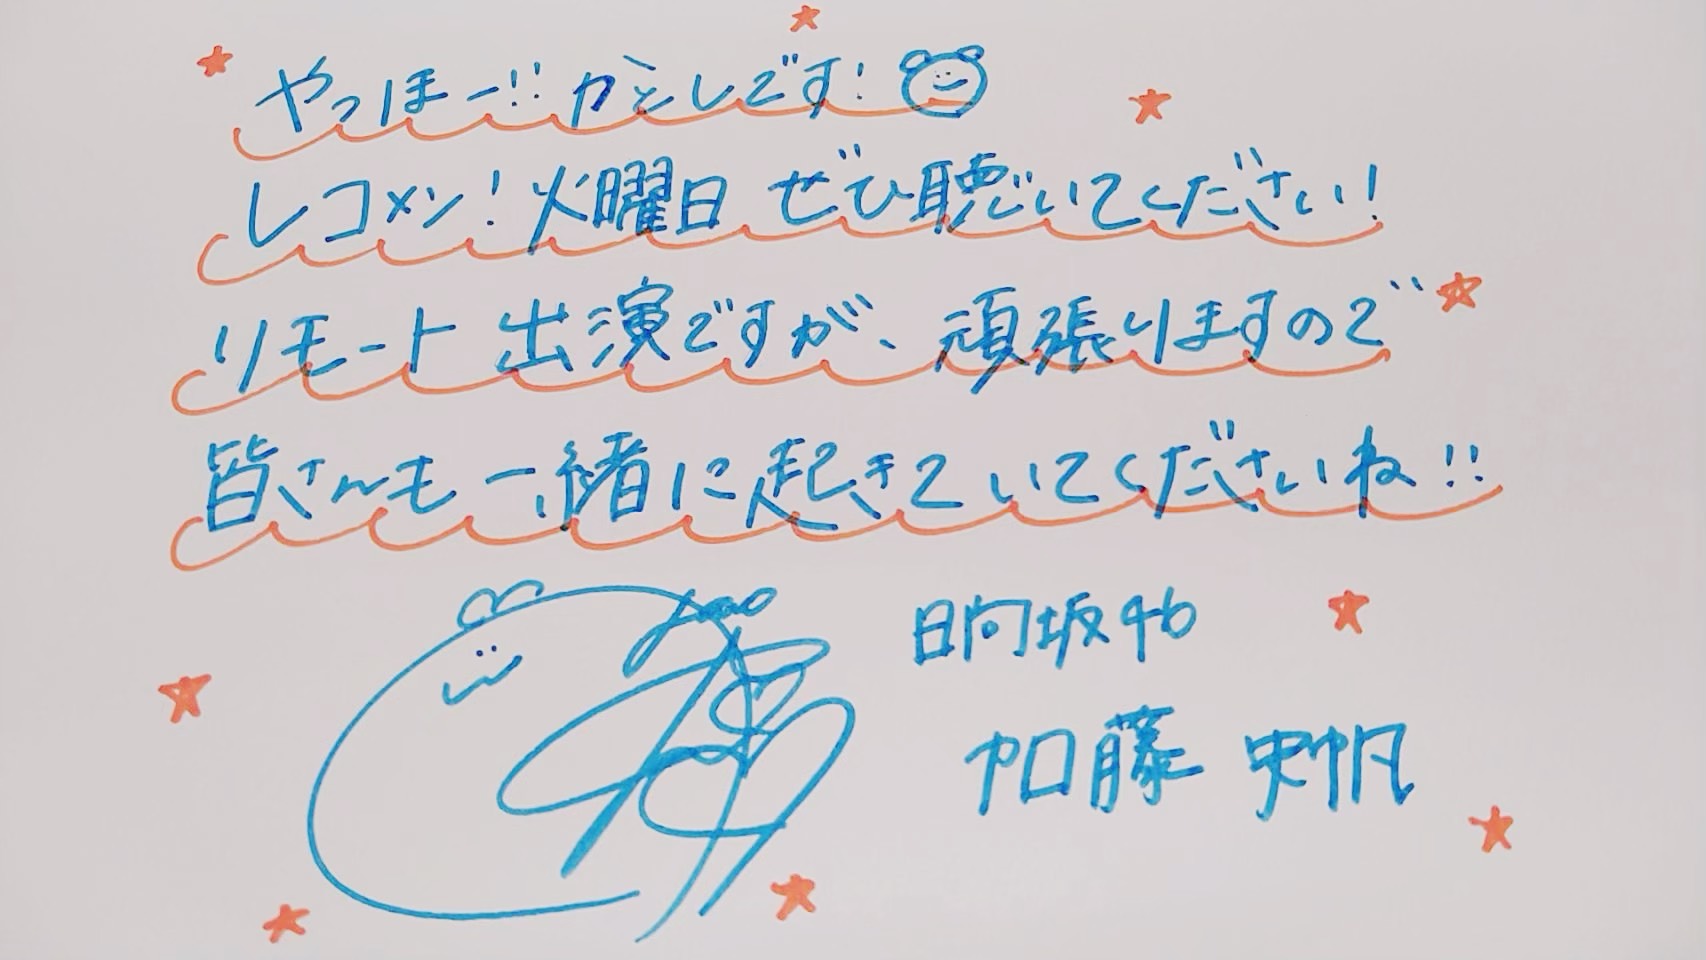 やっほー!! かとしです!
レコメン! 火曜日 ぜひ聴いてください!
リモート出演ですが、頑張りますので
皆さんも一緒に起きていてくださいね!!
日向坂46
加藤 史帆